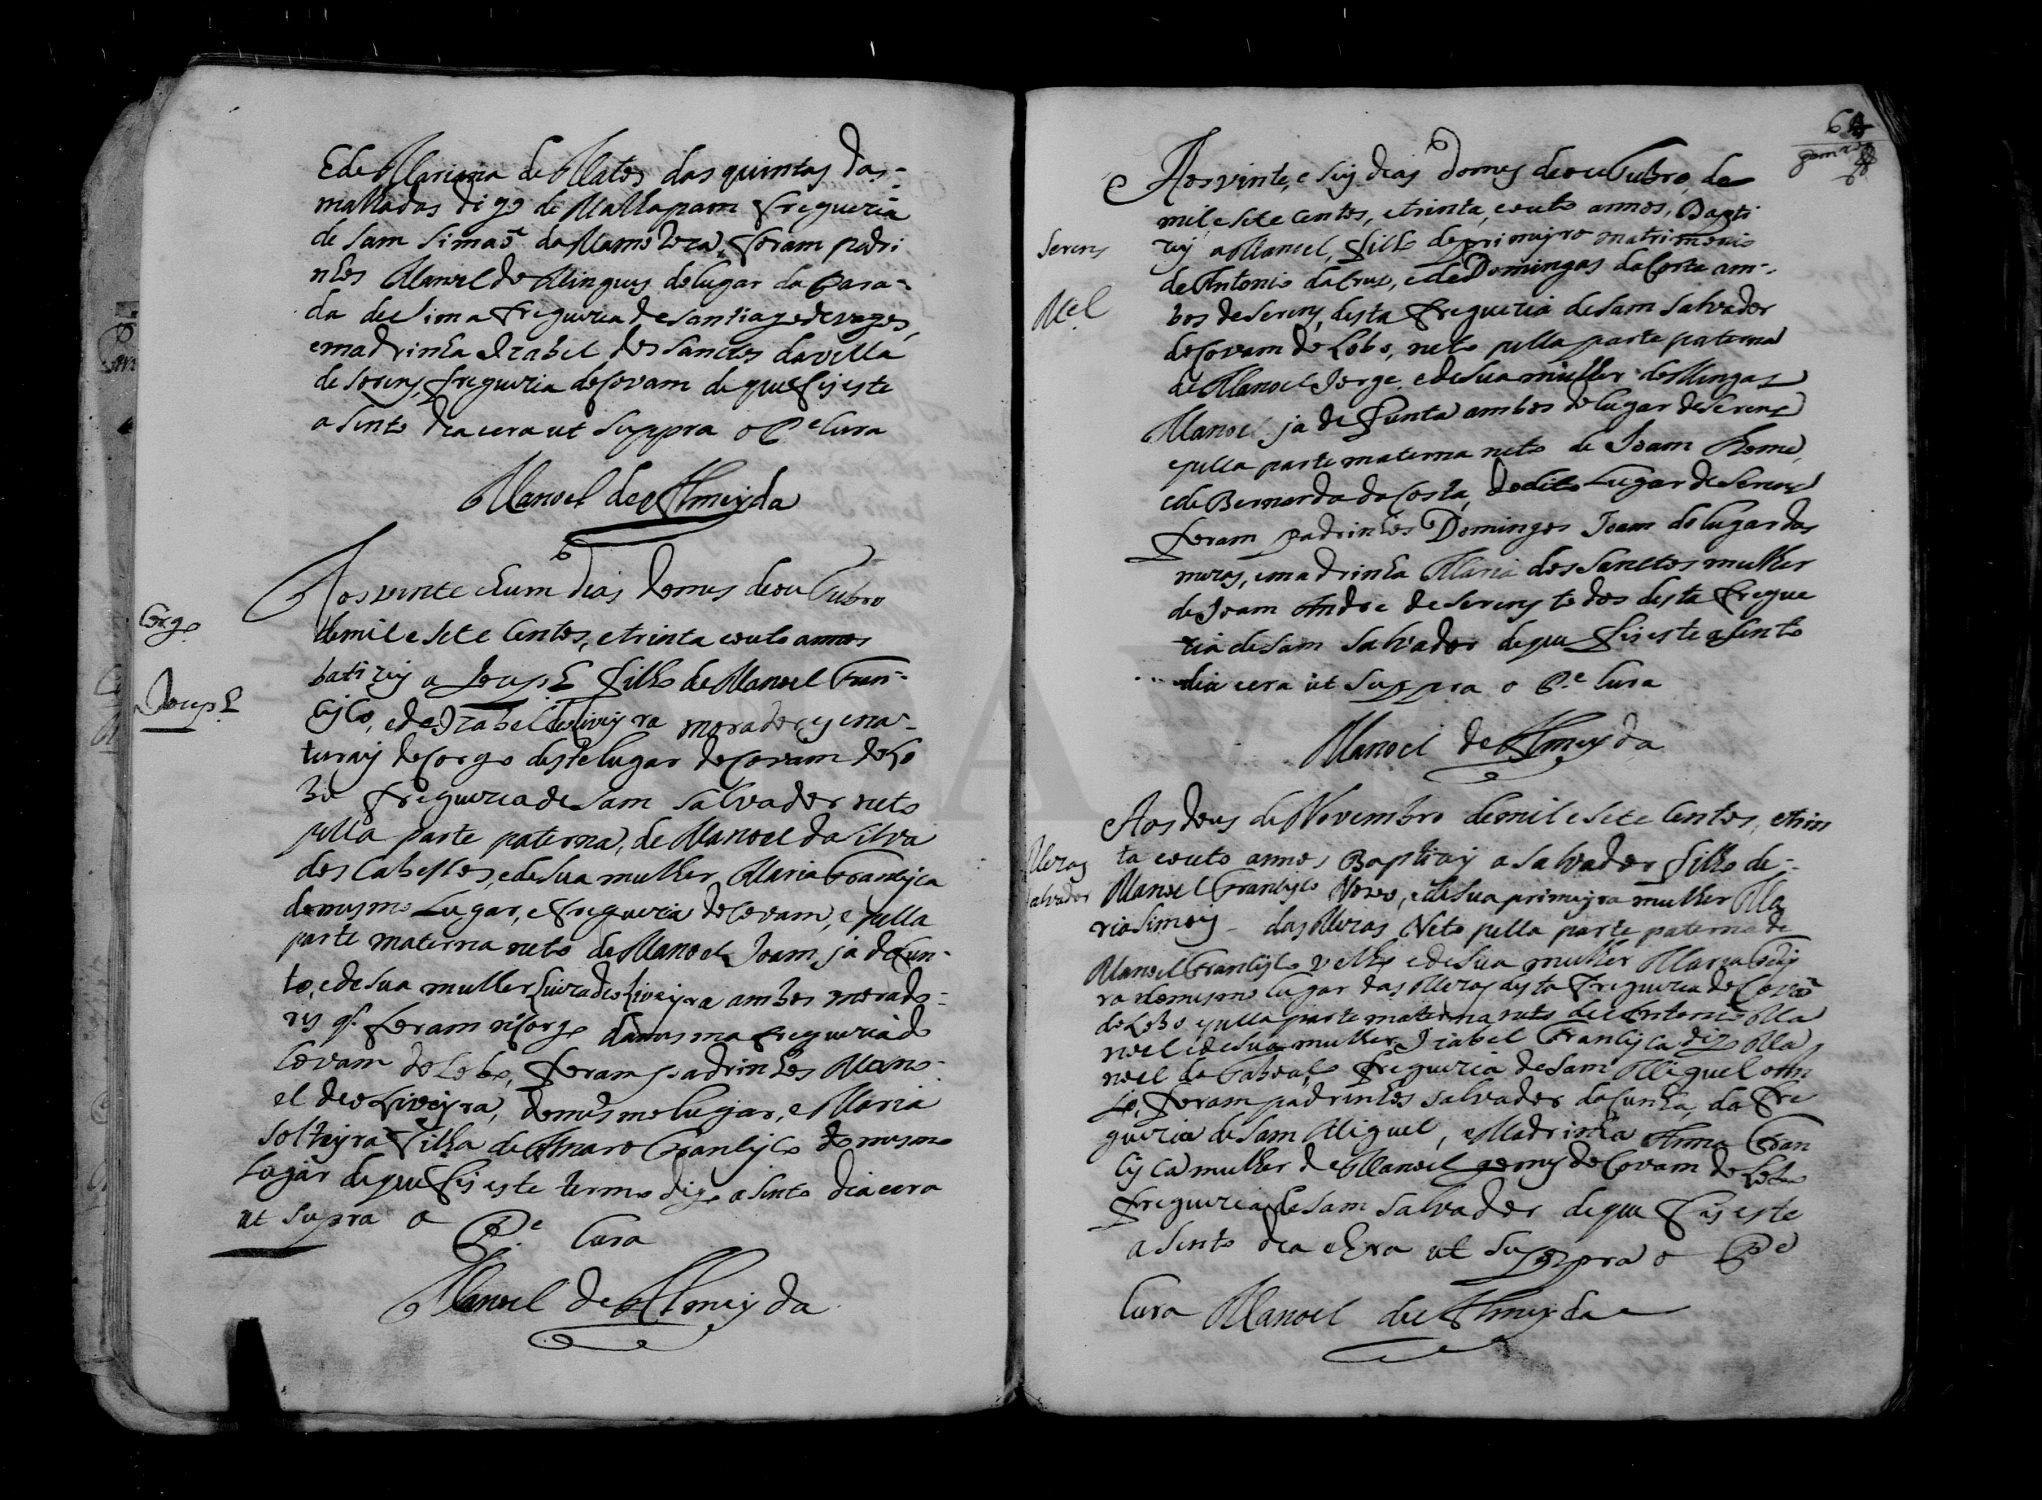 E de Mariana de Matos das quintas das-
malhadas digo de Mallapam freguezia
de sam Simaõ da Mamo Roza, foram padri
nhos Manoel de Mingus do lugar da Para-
da de Sima freguezia de Santiago de vagos,
e madrinha Izabel dos Sanctos da villa
de Sorens, freguezia de Covam de que fis este
asento dia cera ut Suppra o Pe Cura
Manoel de Almeyda
Aos vinte e hum dias do mes de ou Tubro
Corgo
de mil e sete Centos, e trinta e outo annos
batizey a Joseph filho de Manoel Fran-
Joseph
cisco, e de Izabel de oliveyra moradores e na-
turais do Corgo deste lugar de Covam do Lo
bo freguezia de Sam Salvador neto
pella parte paterna, de Manoel da Silva
dos Cabessos, e de sua mulher Maria Francisca
do mesmo Lugar, e freguezia de Covam, e pella
parte materna neto de Manoel Joam ja defun-
to, e de sua mulher Luiza de oliveyra ambos morado-
res q foram no Corgo da mesma freguezia de
Covam do Lobo, foram padrinhos Mano-
el de oLiveyra, do mesmo lugar, e Maria
solteyra filha de Amaro Francisco do mesmo
Lugar de que fis este termo digo asento dia cera
ut Supra o Pe Cura
Manoel de Almeyda
Aos vinte, e seis dias do mes de ou Tubro, de
mil e sete centos, e trinta, e outo annos, Bapti
Serens
zey a Manoel, filho de primeyro matrimonio
de Antonio da Crus, e de Domingas da Costa am-
Mel
bos de Serens, desta freguezia de Sam Salvador
de Covam do Lobo, neto pella parte paterna
de Manoel Jorge e de sua mulher do Mingas
Manoel ja defunta ambos do lugar de Serens
e pella parte materna neto de Joam Thome,
e de Bernarda da Costa, do dito Lugar de Serens
foram padrinhos Domingos Joam do lugar das
mezas, e madrinha Maria dos Sanctos mulher
de Joam Andre de Serens todos desta fregue
zia de Sam Salvador de que fis este asento
dia cera ut Suppra o Pe Cura
Manoel de Almeyda
Aos dous de Novembro de mil e sete Centos, e trin
Mezas
ta e outo annos Baptizey a Salvador filho de-
Salvador
Manoel Francisco Novo, e de sua primeyra mulher Ma
ria Simoes das Mezas, Neto pella parte paterna de
Manoel Francisco velho e de sua mulher Maria
ra do mesmo lugar das Mezas desta freguezia de Covaõ
do Lobo e pella parte materna neto de Antonio Ma
noel e de sua mulher Izabel Francisca digo Ma
noel freguezia de Sam Miguel
foram padrinhos Salvador da Cunha, da fre
guezia de Sam Miguel, e Madrinha Anna Fran
cisca mulher de Manoel gomes de Covam do Lobo
freguezia de Sam Salvador de que fis este
asento dia e Era ut Suppra o Pe
Cura Manoel de Almeyda